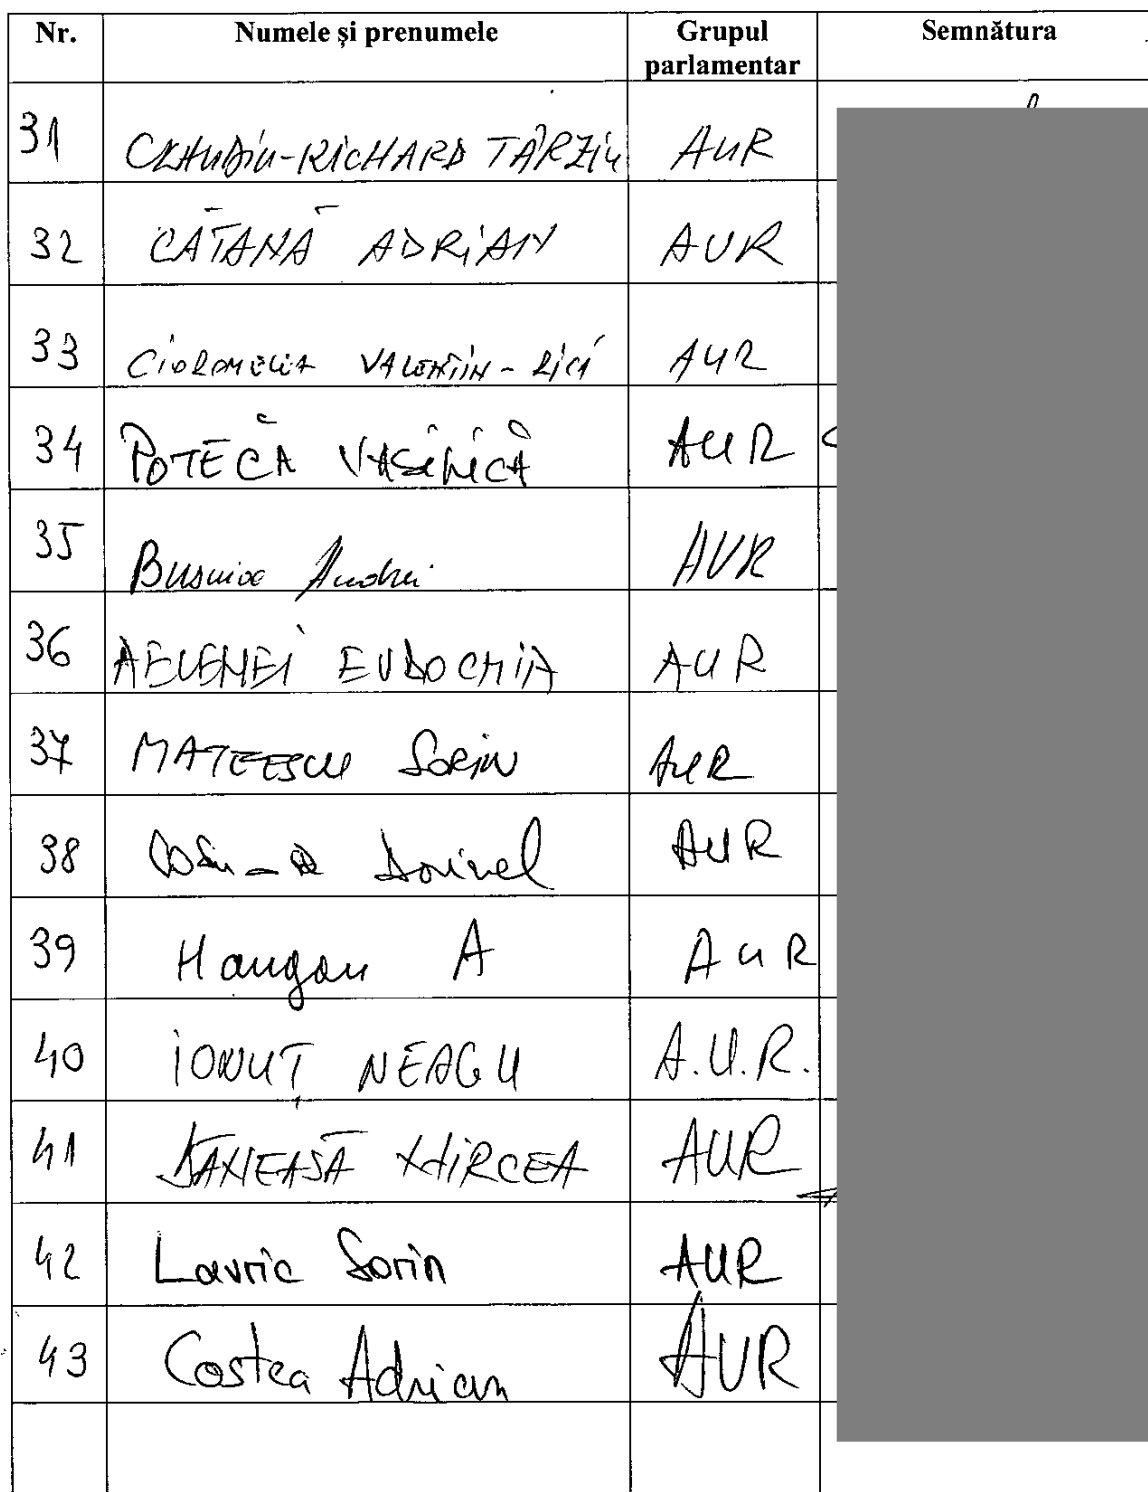 Nr. Numele și prenumele Grupul parlamentar Semnătura
31 CLAUDIU-RICHARD TÂRZIU AUR
32 CĂTANĂ ADRIAN AUR
33 VALENTIN-RICĂ AUR
34 POTECĂ VASILICĂ AUR
35 Busuioc Andrei AUR
36 AELENEI EVDOCHIA AUR
37 MATEESCU Sorin AUR
38 Dorinel AUR
39 Haugan A AUR
40 IONUȚ NEAGU A.U.R.
41 DĂNEASĂ MIRCEA AUR
42 Lavric Sorin AUR
43 Costea Adrian AUR